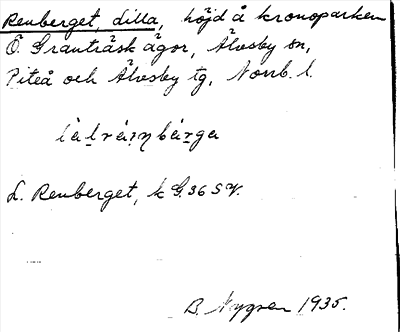 Renberget, lilla, höjd å kronoparken
Ö. Granträsk ägor, Älvsby sn,
Piteå och Älvsby tg, Norrb. l.
L. Renberget, k G.36 SV.
B. 1935.